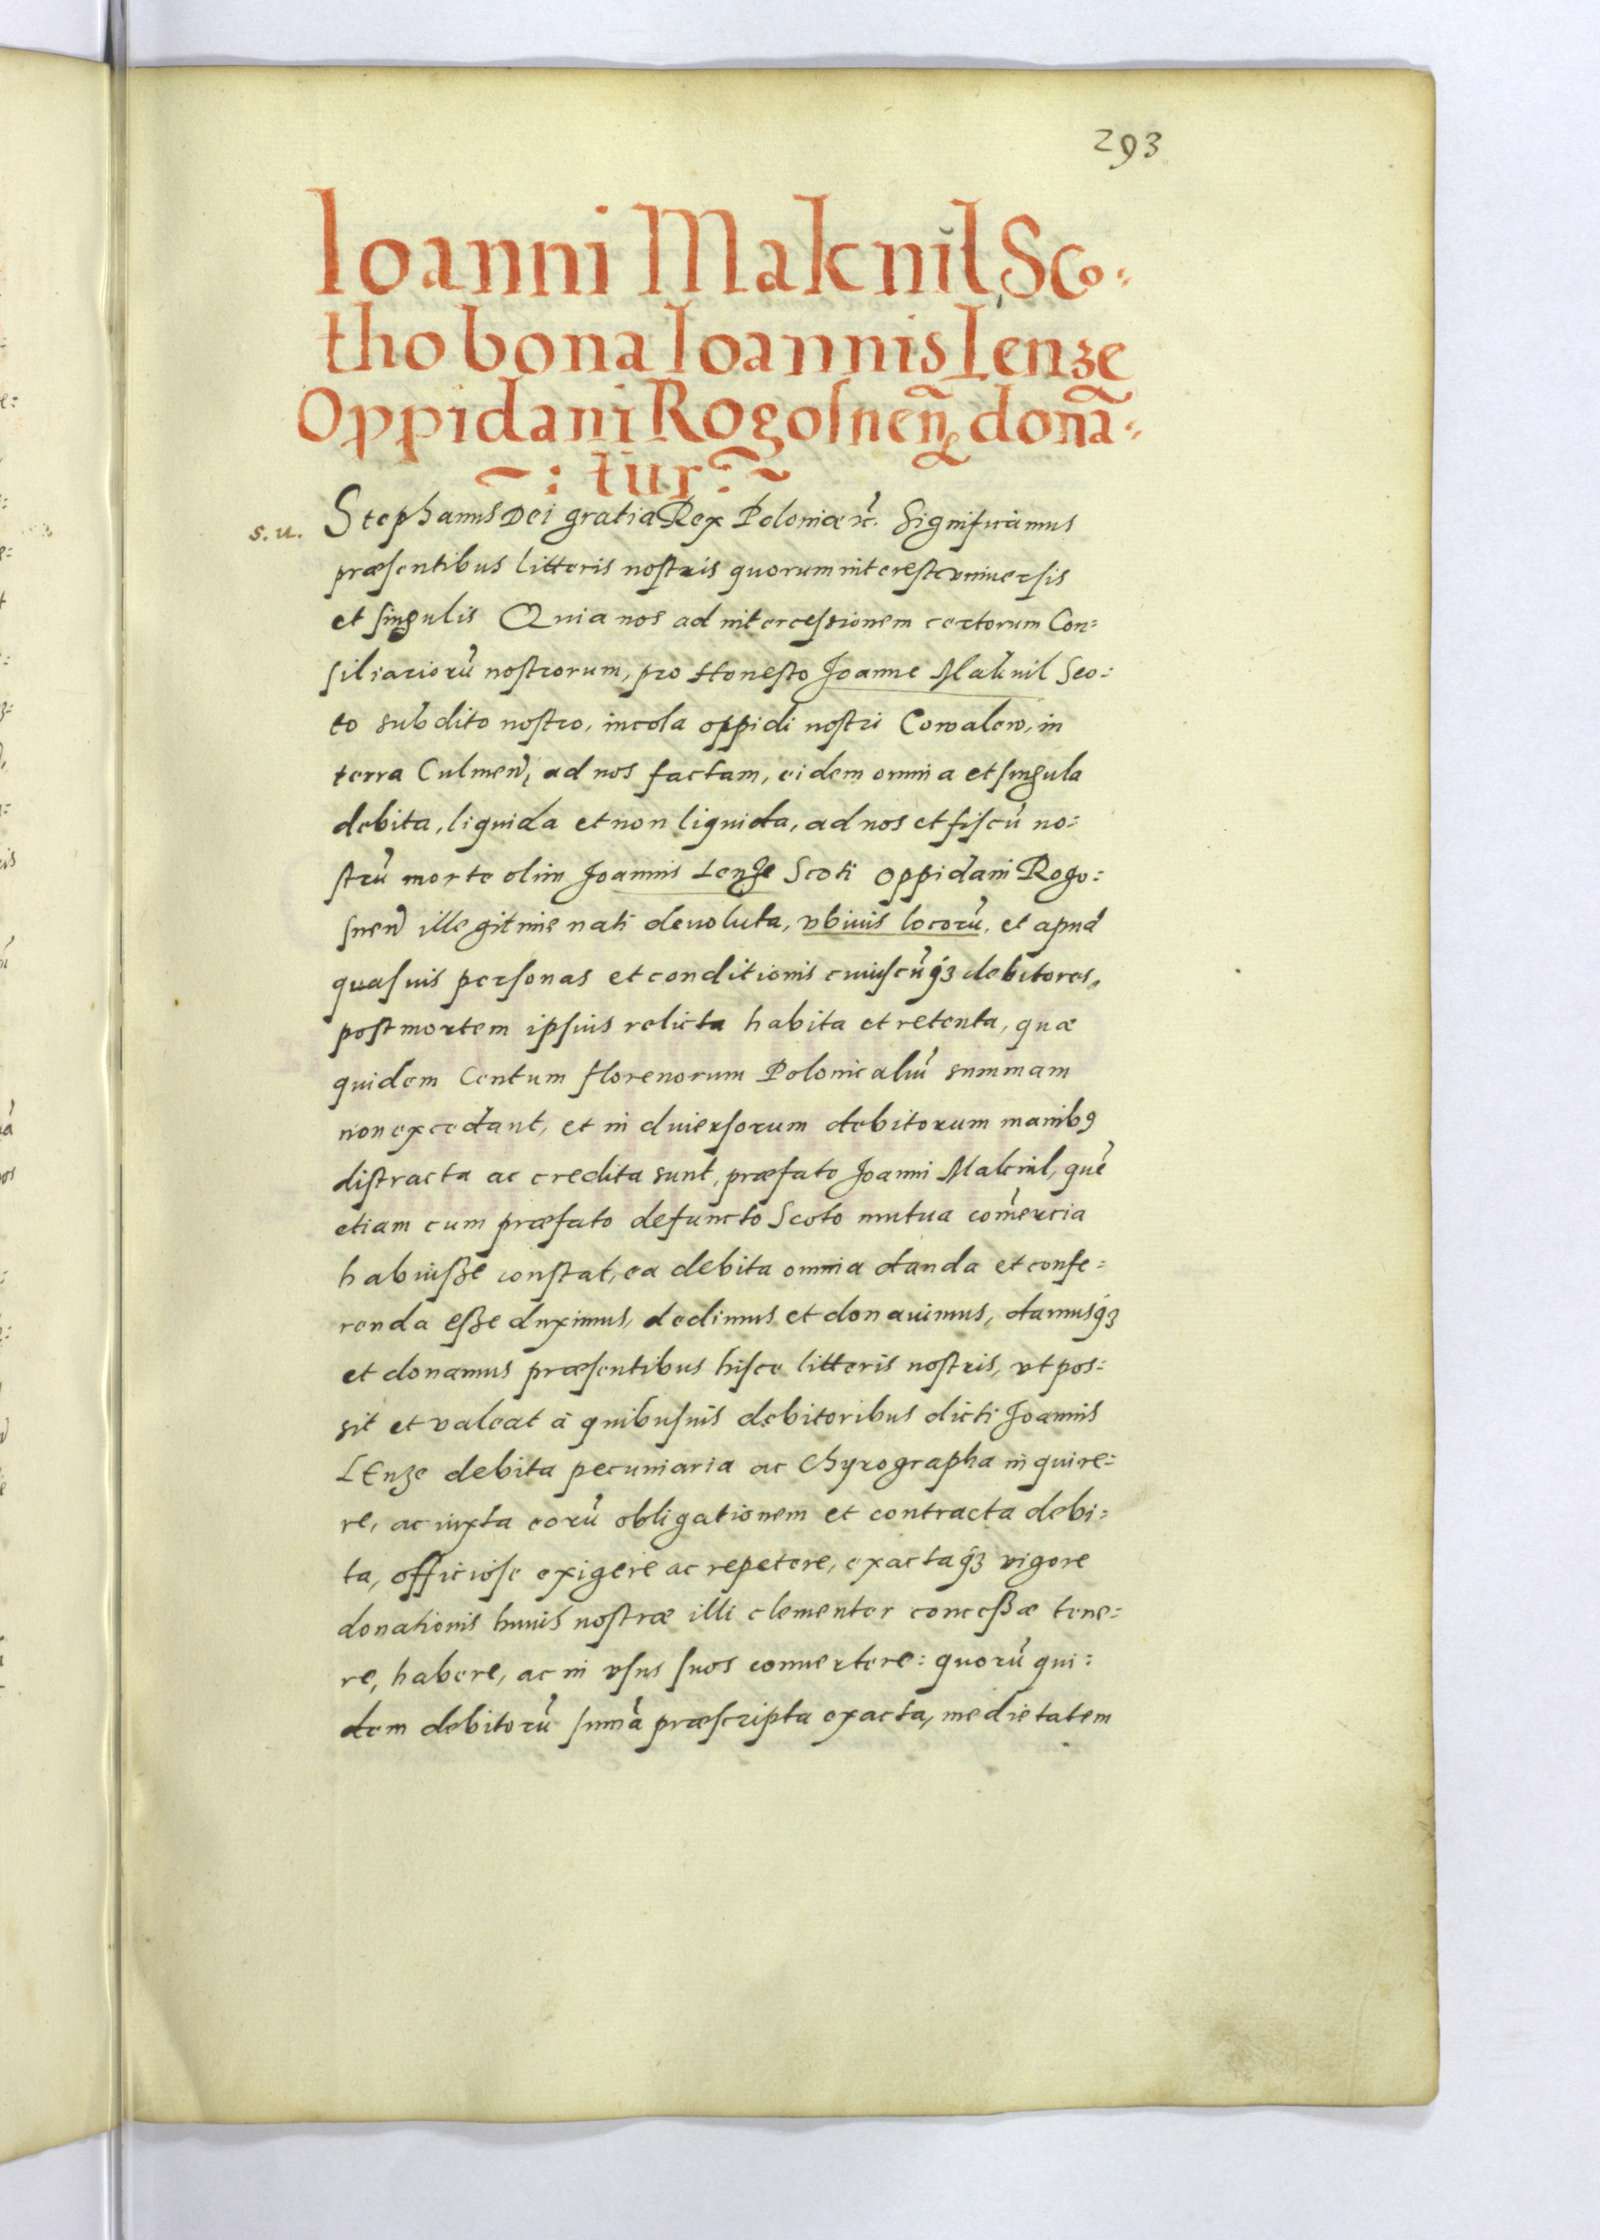 293
Ioanni Maknil Sco-
tho bona Ioannis Lenze
Oppidani Rogosnen̄ donā-
~: tur :~
s. u.
Stephanus Dei gratia Rex Poloniæ ꝛc̃. Significamus
præsentibus litteris nostris quorum interest vniuersis
et singulis Quia nos ad intercessionem certorum Con=
siliariorũ nostrorum, pro Honesto Joanne Maknil Sco=
to subdito nostro, incola oppidi nostri Cowalew, in
terra Culmen̄, ad nos factam, eidem omnia et singula
debita, liquida et non liquida, ad nos et fiscũ no=
strũ morte olim Joannis Lenze Scoti oppidani Rogo=
snen̄ illegitime nati deuoluta, vbiuis locorũ, et apud
quasuis personas et conditionis cuiuscũqꝫ debitores,
post mortem ipsius relicta habita et retenta, quæ
quidem Centum florenorum Polonicaliũ summam
non excedant, et in diuersorum debitorum manibꝰ
distracta ac credita sunt, præfato Joanni Maknil, quẽ
etiam cum præfato defuncto Scoto mutua com̃ercia
habuisse constat, ea debita omnia danda et confe=
renda esse duximus, dedimus et donauimus, damusqꝫ
et donamus præsentibus hisce litteris nostris, vt pos=
sit et valeat à quibusuis debitoribus dicti Joannis
LEnze debita pecuniaria ac Chyrographa inquire=
re, ac iuxta eorũ obligationem et contracta debi=
ta, officiose exigere ac repetere, exactaqꝫ vigore
donationis huius nostræ illi clementer concessæ tene=
re, habere, ac in vsus suos conuertere: quorũ qui=
dem debitorũ sum̃a præscripta exacta, medietatem